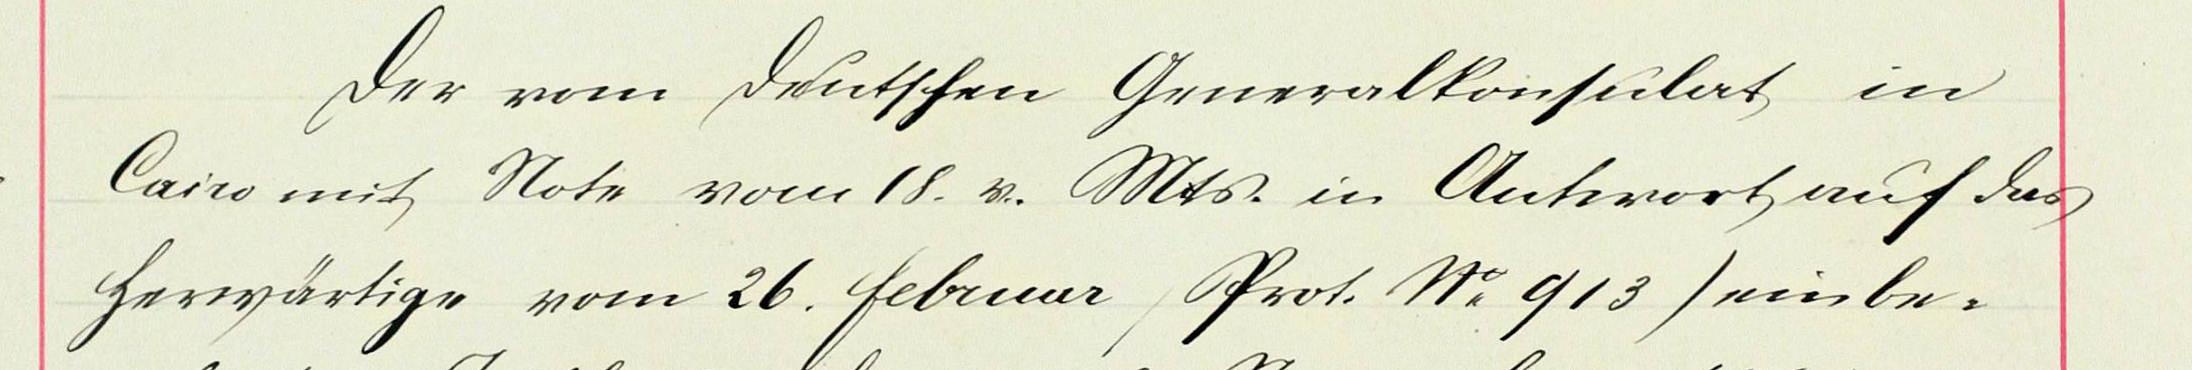 Der vom deutschen Generalkonsulat in
Cairo mit Note vom 18. v. Mts. in Antwort auf das
herwärtige vom 26. Februar (Prot. № 913) einbe-